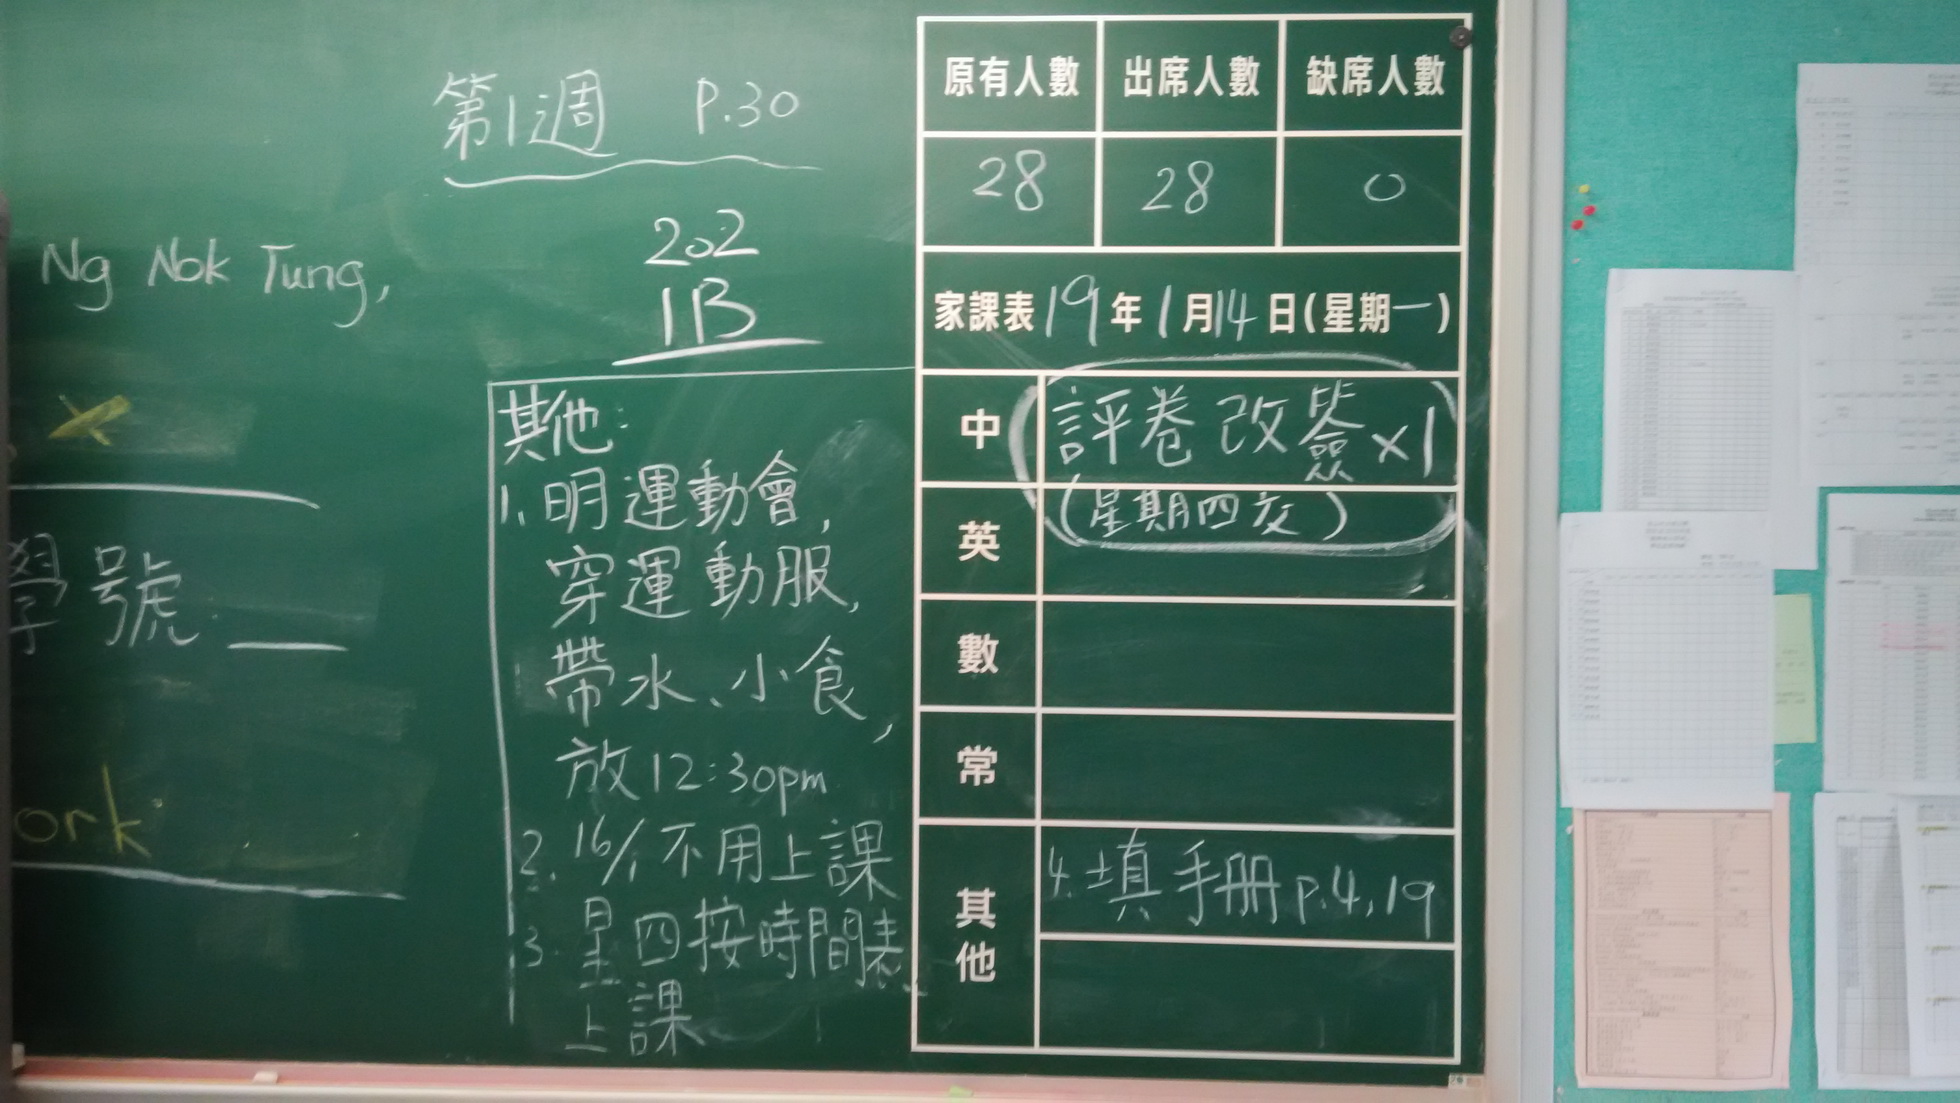 第1週 P.30
202
1B
Ng Nok Tung,
學號
ork
其他:
1. 明運動會,
穿運動服,
帶水、小食,
放12:30pm
2. 16/1不用上課
3. 星四按時間表
上課
原有人數 出席人數 缺席人數
28 28 0
家課表19年1月14日(星期一)
中 評卷改簽x1
(星期四交)
英
數
常
其他 4. 填手冊p.4,19